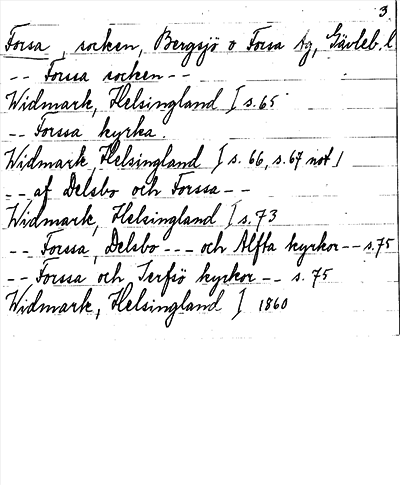 3
Forsa, socken, Bergsjö o Forsa tg, Gävleb. l
-- Forssa socken --
Widmark, Helsingland I s. 65
-- Forssa kyrka.
Widmark Helsingland I s. 66, s. 67 not)
-- af Delsbo och Forssa --
Widmark, Helsingland I s. 73
-- Forssa, Delsbo --- och Alfta kyrkor -- s. 75
-- Forssa och Jerfsö kyrkor -- s. 75
Widmark, Helsingland I 1860